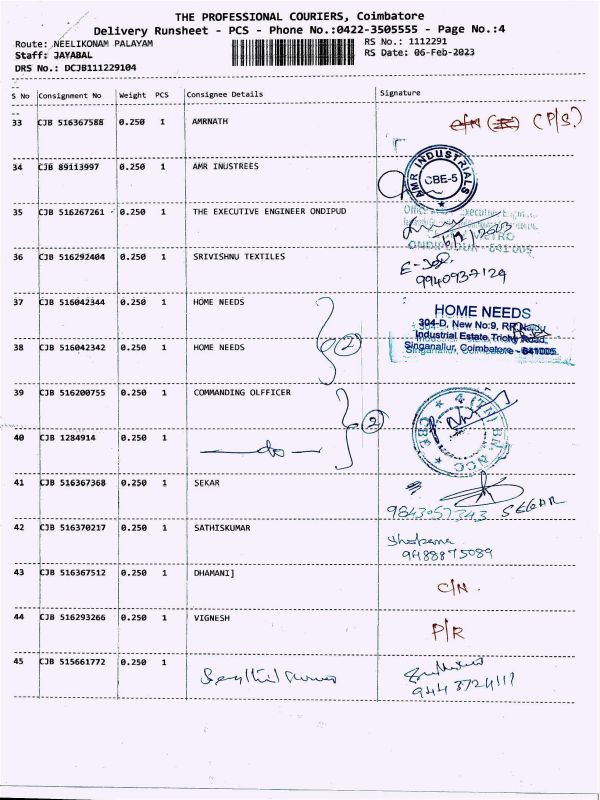 THE PROFESSIONAL COURIERS, Coimbatore
Delivery Runsheet - PCS - Phone No.:0422-3505555 - Page No.:4
Route: NEELIKONAM PALAYAM
RS No.: 1112291
Staff: JAYABAL
RS Date: 06-Feb-2023
DRS No.: DCJB111229104
S No Consignment No Weight PCS Consignee Details Signature
33 CJB 516367588 0.250 1 AMRNATH (P/S)
34 CJB 89113997 0.250 1 AMR INUSTREES
AMR INDUSTRIALS
CBE-5
35 CJB 516267261 0.250 1 THE EXECUTIVE ENGINEER ONDIPUD
36 CJB 516292404 0.250 1 SRIVISHNU TEXTILES
9940937129
37 CJB 516042344 0.250 1 HOME NEEDS
HOME NEEDS
304-D, New No:9, RR Naidu
Industrial Estate, Trichy Road,
Singanallur, Coimbatore - 641005
38 CJB 516042342 0.250 1 HOME NEEDS
2
39 CJB 516200755 0.250 1 COMMANDING OLFFICER
2
40 CJB 1284914 0.250 1 —do—
4 (TN) BN. NCC
CBE
41 CJB 516367368 0.250 1 SEKAR
9843057343 SEKAR
42 CJB 516370217 0.250 1 SATHISKUMAR
9488875089
43 CJB 516367512 0.250 1 DHAMANI]
C/N.
44 CJB 516293266 0.250 1 VIGNESH
P/R
45 CJB 515661772 0.250 1 Senthil Kumar